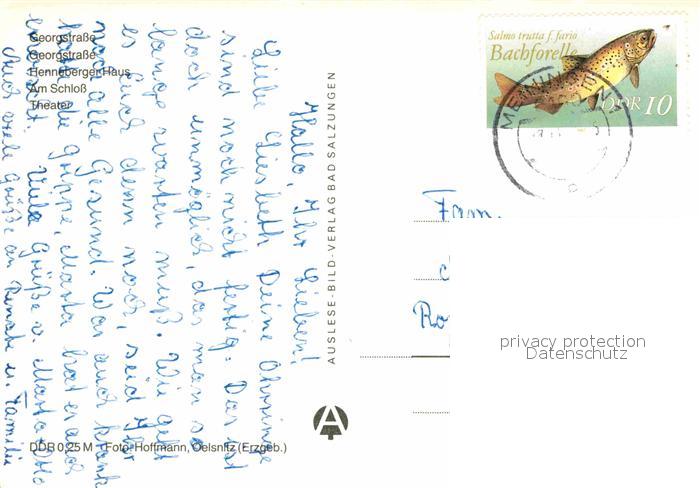 Georgstraße
Georgstraße
Henneberger Haus
Am Schloß
Theater
Hallo, Ihr Lieben!
Liebe Liesbeth Deine Ohrringe
sind noch nicht fertig. Das ist
doch unmöglich, das man so
lange warten muß. Wie geht
es Euch denn noch, seid Ihr
noch alle Gesund. War auch krank
hatte die Grippe, Marta hat es auch
erwischt. Viele Grüße v. Marta
Auch viele Grüße an Renate u. Familie
DDR 0,25 M Foto: Hoffmann, Oelsnitz (Erzgeb.)
AUSLESE-BILD-VERLAG BAD SALZUNGEN
Salmo trutta f. fario
Bachforelle
DDR 10
MEININGEN
Fam.
Ro
privacy protection
Datenschutz